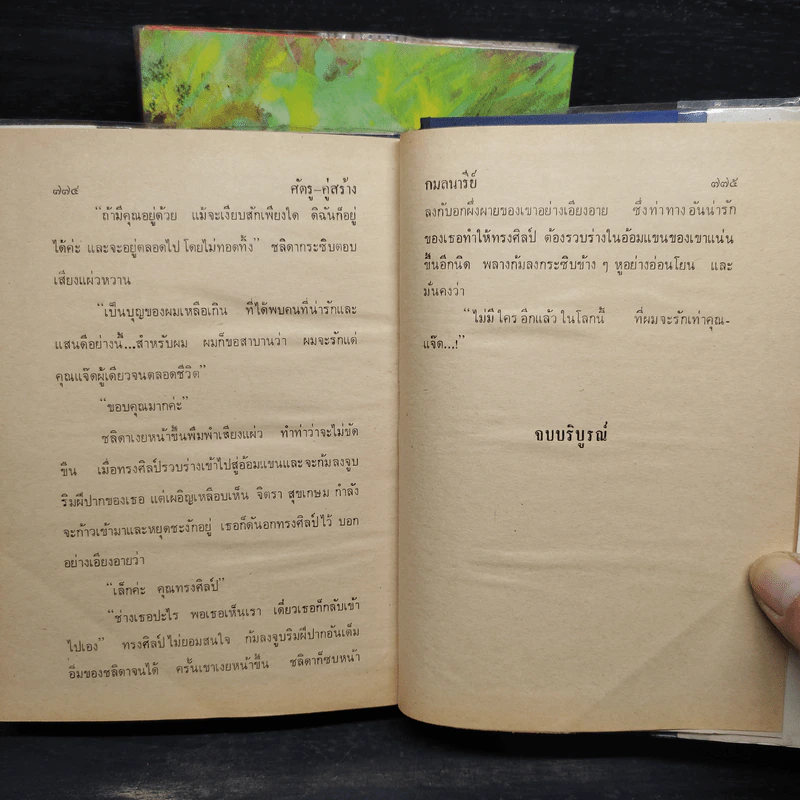 ๗๗๔ ศัตรู-คู่สร้าง
“ถ้ามีคุณอยู่ด้วย แม้จะเงียบสักเพียงใด ดิฉันก็อยู่
ได้ค่ะ และจะอยู่ตลอดไป โดยไม่ทอดทิ้ง” ชลิตากระซิบตอบ
เสียงแผ่วหวาน
“เป็นบุญของผมเหลือเกิน ที่ได้พบคนที่น่ารักและ
แสนดีอย่างนี้...สำหรับผม ผมก็ขอสาบานว่า ผมจะรักแต่
คุณแจ๊ดผู้เดียวจนตลอดชีวิต”
“ขอบคุณมากค่ะ”
ชลิตาเงยหน้าขึ้นพึมพำเสียงแผ่ว ทำท่าว่าจะไม่ขัด
ขืน เมื่อทรงศิลป์รวบร่างเข้าไปสู่อ้อมแขนและจะก้มลงจูบ
ริมฝีปากของเธอ แต่เผอิญเหลือบเห็น จิตรา สุขเกษม กำลัง
จะก้าวเข้ามาและหยุดชะงักอยู่ เธอก็ดันอกทรงศิลป์ไว้ บอก
อย่างเอียงอายว่า
“เล็กค่ะ คุณทรงศิลป์”
“ช่างเธอปะไร พอเธอเห็นเรา เดี๋ยวเธอก็กลับเข้า
ไปเอง” ทรงศิลป์ไม่ยอมสนใจ ก้มลงจูบริมฝีปากอันเต็ม
อิ่มของชลิตาจนได้ ครั้นเขาเงยหน้าขึ้น ชลิตาก็ซบหน้า
กมลนารีย์ ๗๗๕
ลงกับอกผึ่งผายของเขาอย่างเอียงอาย ซึ่งท่าทางอันน่ารัก
ของเธอทำให้ทรงศิลป์ ต้องรวบร่างในอ้อมแขนของเขาแน่น
ขึ้นอีกนิด พลางก้มลงกระซิบข้าง ๆ หูอย่างอ่อนโยน และ
มั่นคงว่า
“ไม่มีใครอีกแล้วในโลกนี้ ที่ผมจะรักเท่าคุณ-
แจ๊ด...!”
จบบริบูรณ์